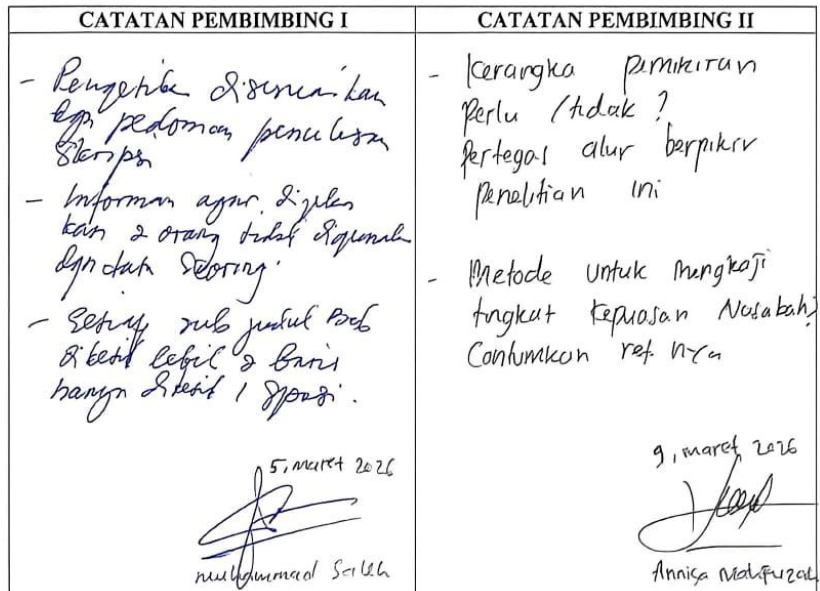 CATATAN PEMBIMBING I
- Pengetikan disesuaikan
dgn pedoman penulisan
Skripsi
- Informan agar dijelas
kan 2 orang tidak digunakan
dgn data
- Setiap sub judul Bab
lebih 2 baris
hanya 1 spasi.
5, maret 2026
Muhammad Saleh
CATATAN PEMBIMBING II
- Kerangka pemikiran
Perlu / tidak ?
Pertegas alur berpikir
Penelitian ini
- Metode untuk mengkaji
tingkat Kepuasan Nasabah?
Cantumkan ref. nya
9, maret 2026
Annisa Mahfuzah